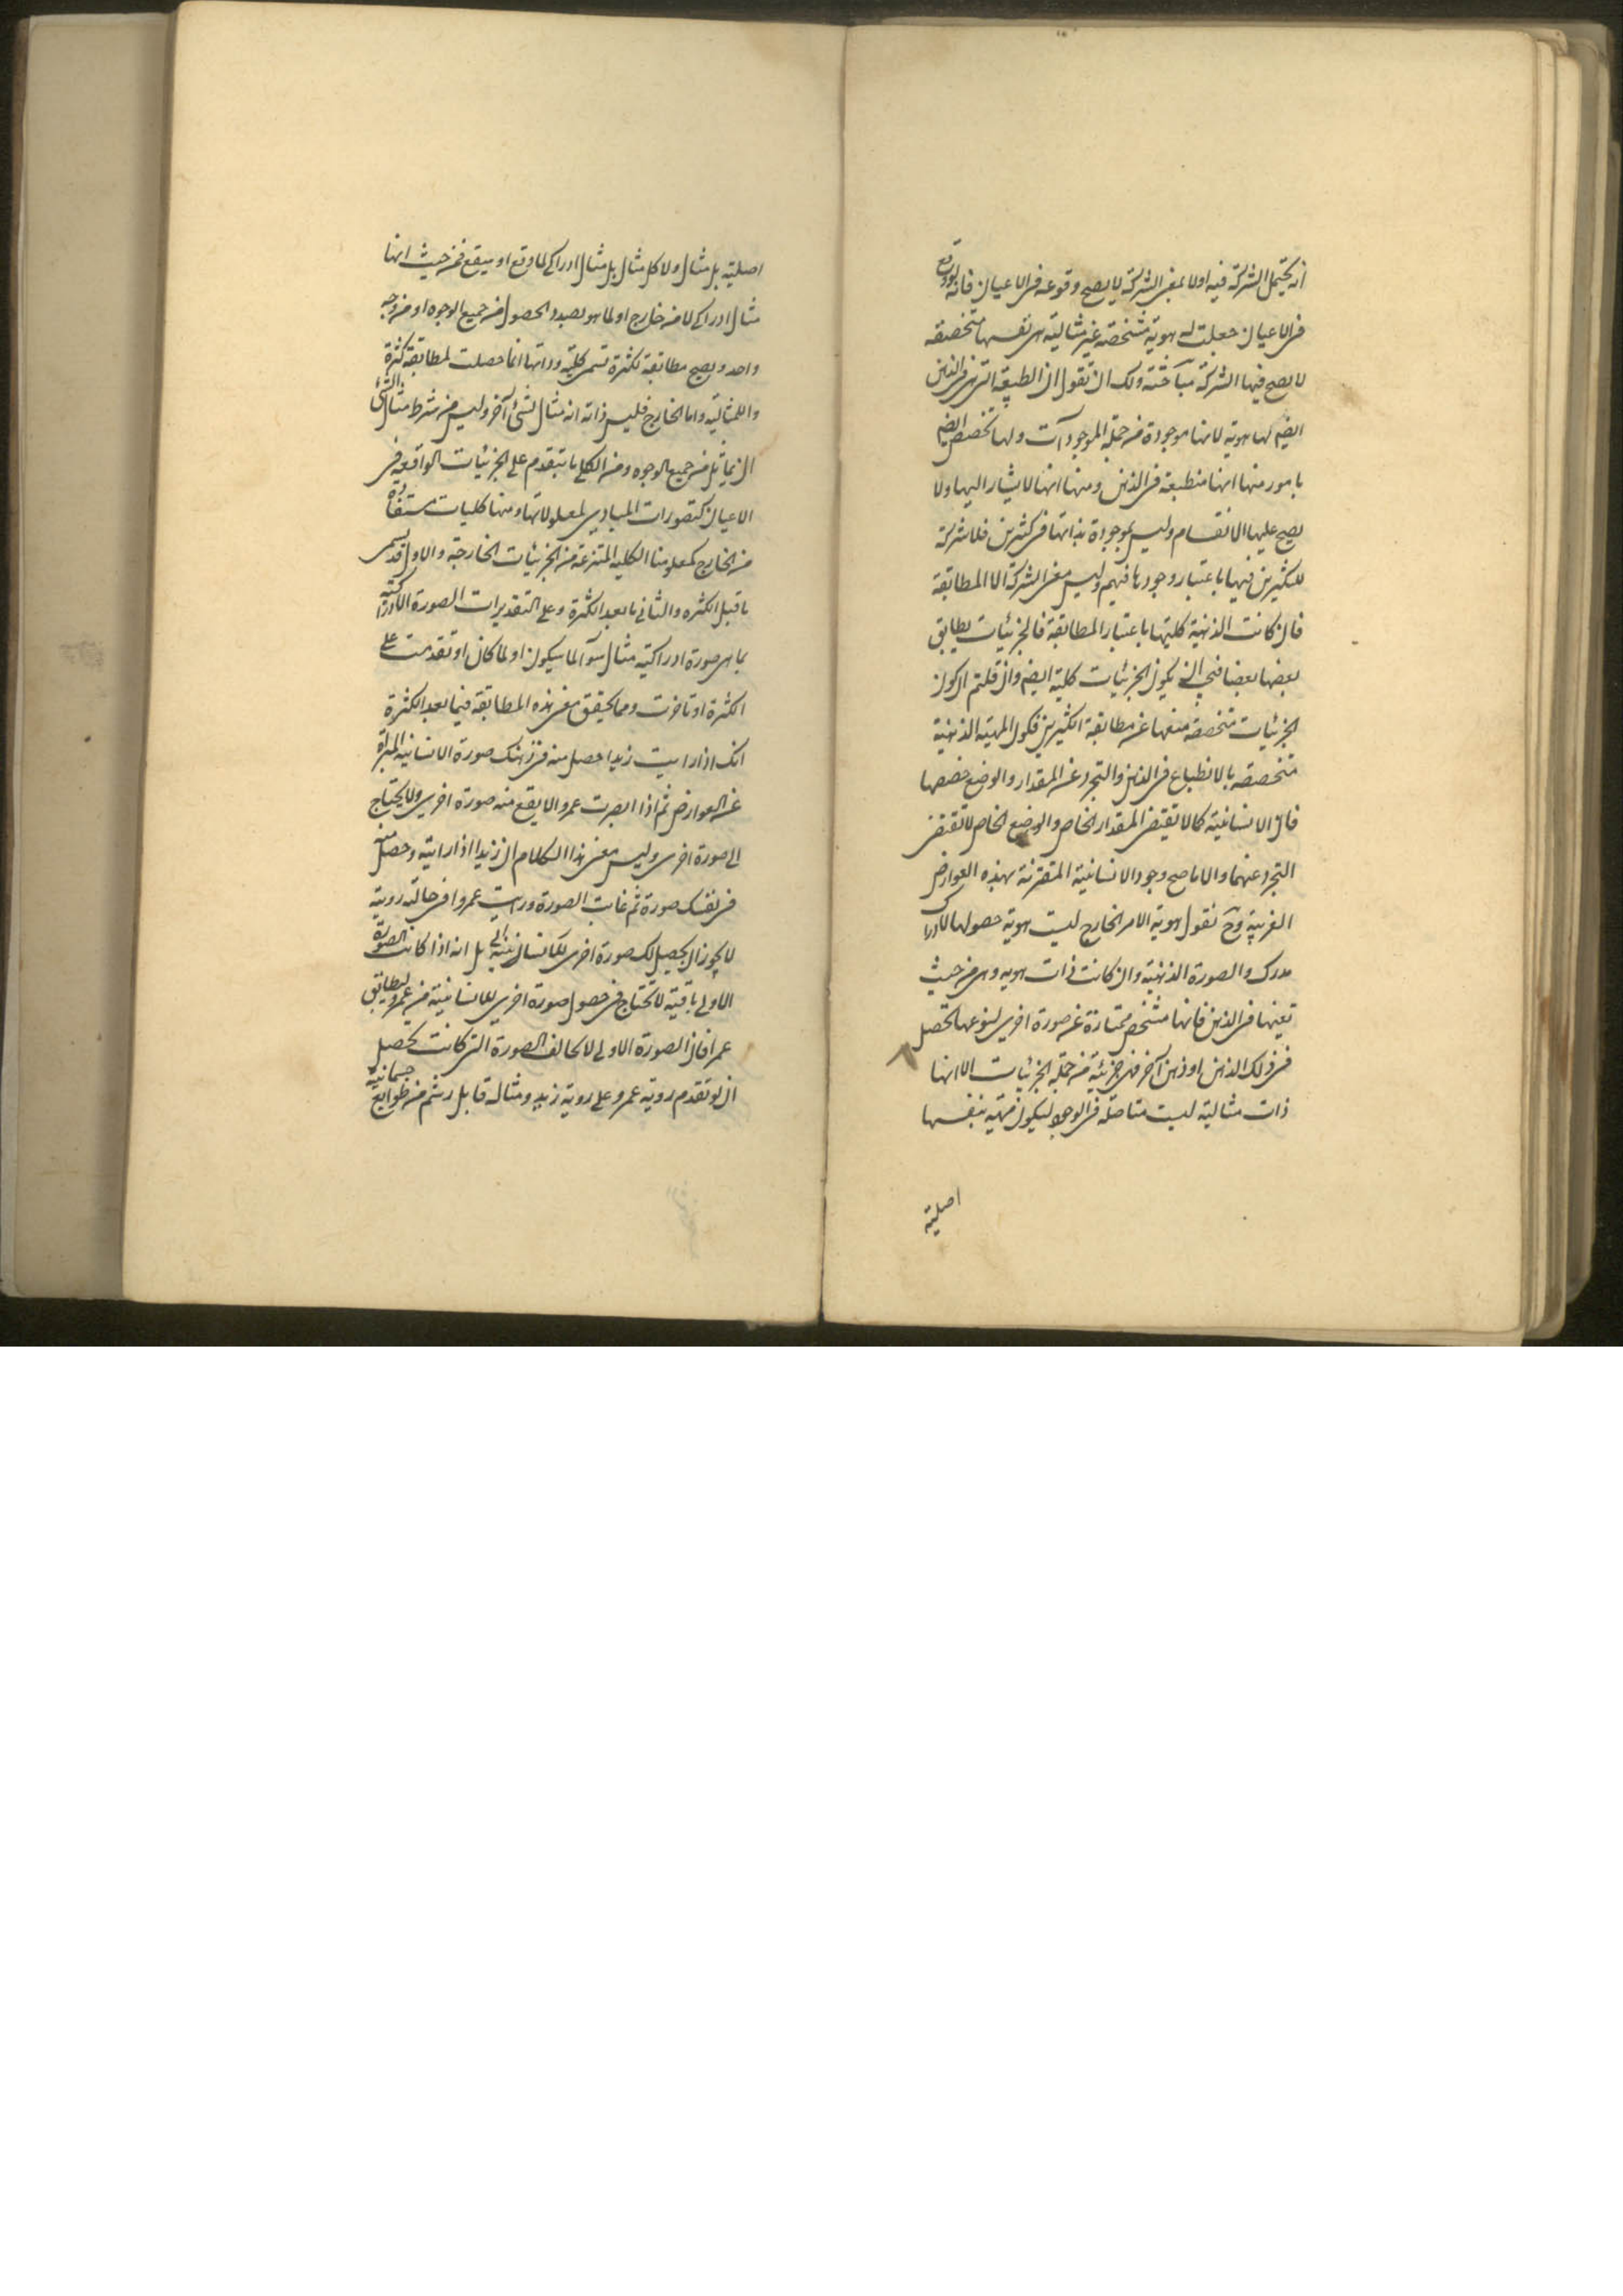 انه يحتمل الشركة فيه اولا بمعنى الشركة لا يصح وقوعه فى الاعيان فانه لو وقع
فى الاعيان حصلت له هوية متشخصة غير مثالية هى نفسها متخصصة
لا يصح فيها الشركة مباحثة ولك ان تقول ان الطبيعة التى فى الذهن
ايضم لها هوية لانها موجودة من جملة الموجودات ولها تخصص ايضم
بامور منها انها منطبعة فى الذهن ومنها انها لا يشار اليها ولا
يصح عليها الانقسام وليس بموجودة بذاتها فى كثيرين فلا شركة
للكثيرين فيها باعتبار وجودها فيهم وليس معنى الشركة الا المطابقة
فان كانت الذهنية كليتها باعتبار المطابقة فالجزئيات يطابق
بعضها بعضا فيجب ان يكون الجزئيات كلية ايضم وان قلتم ان كون
الجزئيات متخصصة منعها عن مطابقة الكثيرين فكون المهية الذهنية
متخصصة بالانطباع فى الذهن والتجرد عن المقدار والوضع خصصها
فان الانسانية كما لا تقتضى المقدار الخاص والوضع الخاص لا تقتضى
التجرد عنهما والا ما صح وجود الانسانية المقترنة بهذه العوارض
الغريبة وح نقول هوية الامر الخارج ليست هوية حصولها لادراك
مدرك والصورة الذهنية وان كانت ذات هوية وهى من حيث
تعينها فى الذهن فانها متشخص ممتازة عن صورة اخرى لنوعها تحصل
فى ذلك الذهن او ذهن آخر فهى جزئية من جملة الجزئيات الا انها
ذات مثالية ليست متاصلة فى الوجود ليكون مهية بنفسها
اصلية
اصلية بل مثال ولا كل مثال بل مثال ادراكى لما وقع او سيقع فمن حيث انها
مثال ادراكى لا من خارج او لما هو بصدد الحصول من جميع الوجوه او من وجه
واحد ويصح مطابقة لكثرة تسمى كلية وذاتها انما حصلت لمطابقة كثرة
والمثالية واما الخارج فليس ذاته انه مثال لشئ آخر وليس من شرط مثال الشئ
ان يماثل من جميع الوجوه ومن الكلى ما يتقدم على الجزئيات الواقعة فى
الاعيان كتصورات المبادى لمعلولاتها ومنها كليات مستفادة
من الخارج كمعلومنا الكلية المنتزعة من الجزئيات الخارجة والاول قد يسمى
ما قبل الكثرة والثانى ما بعد الكثرة وعلى التقديرات الصورة الادراكية
بما هى صورة ادراكية مثال سوآء لما سيكون او لما كان او تقدمت على
الكثرة او تاخرت ومما يحقق معنى هذه المطابقة فيما بعد الكثرة
انك اذا رايت زيدا حصل منه فى ذهنك صورة الانسانية المبراة
عن العوارض ثم اذا ابصرت عمروا لا يقع منه صورة اخرى ولا يحتاج
الى صورة اخرى وليس معنى هذا الكلام ان زيدا اذا رايته وحصل منه
فى نفسك صورة ثم غابت الصورة ورايت عمروا فى حالة رويته
لا يجوز ان يحصل لك صورة اخرى بل انه اذا كانت الصورة
الاولى باقية لا تحتاج فى حصول صورة اخرى للانسانية من عمرو
عمرا فان الصورة الاولى لا تخالف الصورة التى كانت تحصل
ان لو تقدم روية عمرو على روية زيد ومثاله قابل رشم من طوابع جسمانية